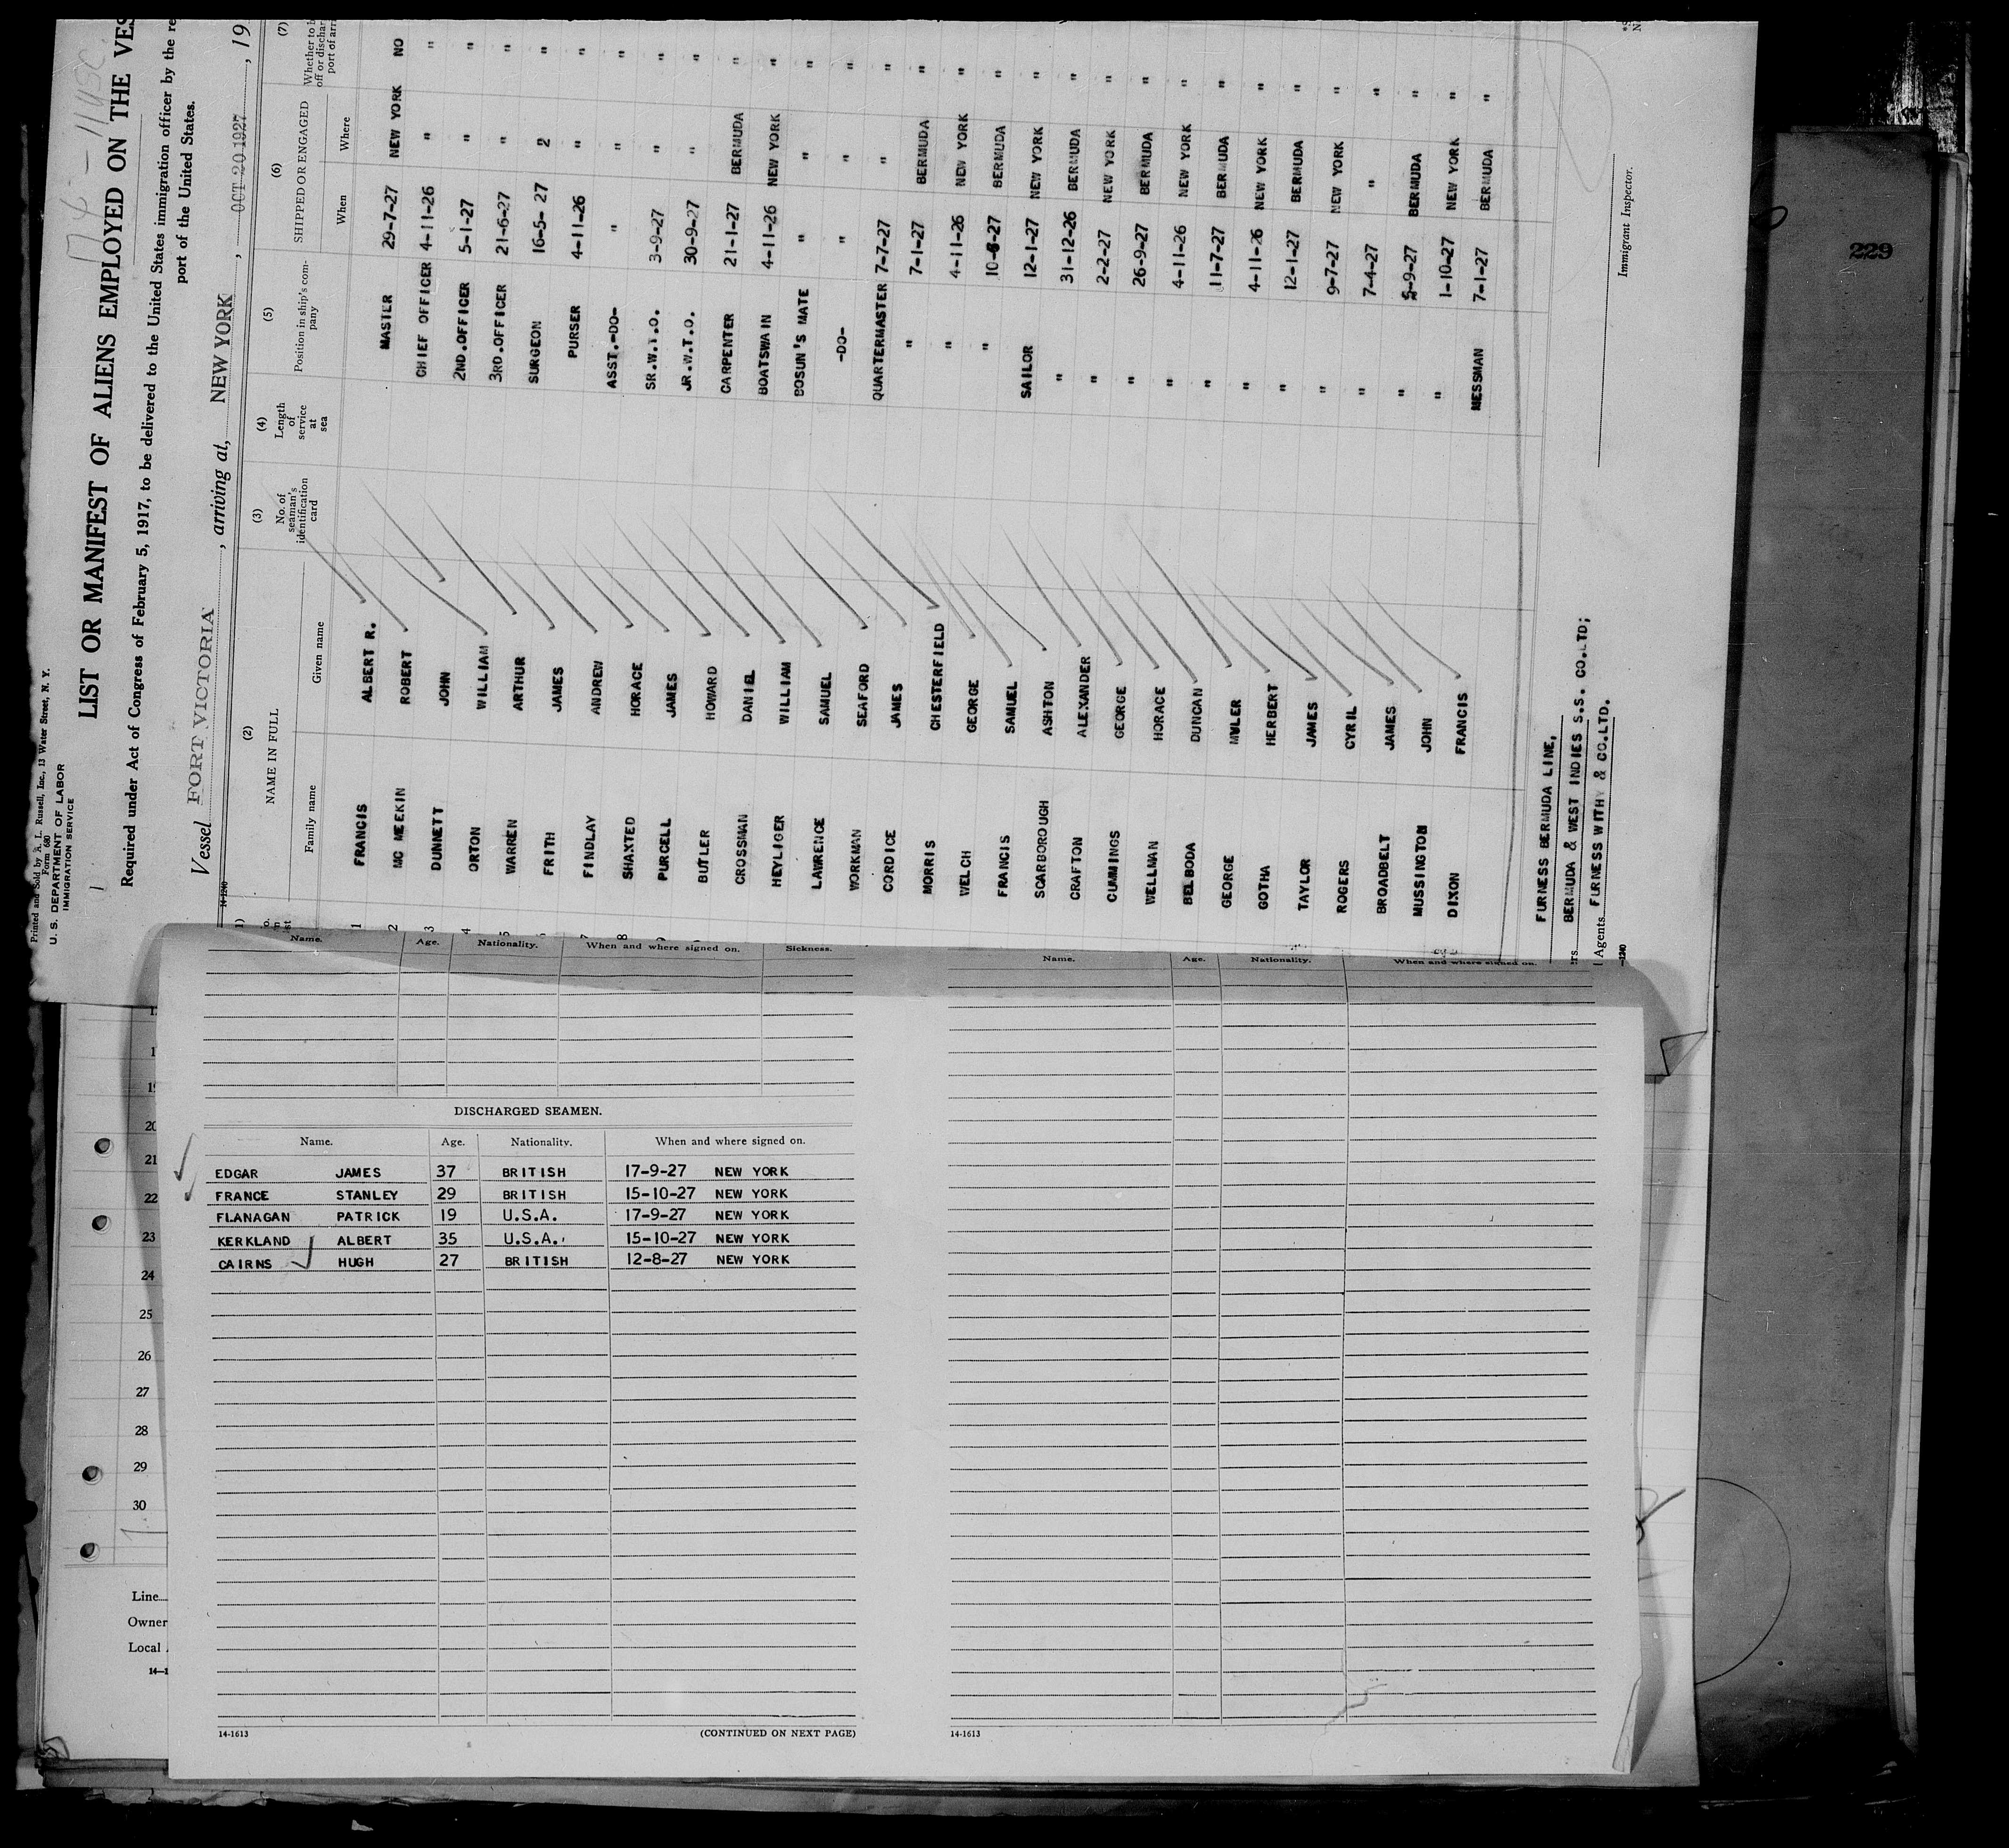 Printed and Sold by A. L. Russell, Inc., 13 Water Street, N. Y.
Form 680
U. S. DEPARTMENT OF LABOR
IMMIGRATION SERVICE
LIST OR MANIFEST OF ALIENS EMPLOYED ON THE VES
Required under Act of Congress of February 5, 1917, to be delivered to the United States immigration officer by the re
port of the United States.
Vessel FORT VICTORIA, arriving at, NEW YORK, OCT 20 1927, 19
14-1240
(2) (3) (4) (5) (6) (7)
NAME IN FULL No. of seaman's identification card Length of service at sea Position in ship's company SHIPPED OR ENGAGED
Family name Given name When Where
1 FRANCIS ALBERT R. MASTER 29-7-27 NEW YORK NO
2 MC MEEKIN ROBERT CHIEF OFFICER 4-11-26 " "
3 DUNNETT JOHN 2ND.OFFICER 5-1-27 " "
4 ORTON WILLIAM 3RD.OFFICER 21-6-27 " "
5 WARREN ARTHUR SURGEON 16-5-27 2 "
FRITH JAMES PURSER 4-11-26 " "
7 FINDLAY ANDREW ASST.-DO- " " "
8 SHAXTED HORACE SR.W.T.O. 3-9-27 " "
PURCELL JAMES JR.W.T.O. 30-9-27 " "
BUTLER HOWARD CARPENTER 21-1-27 BERMUDA "
CROSSMAN DANIEL BOATSWAIN 4-11-26 NEW YORK "
HEYLIGER WILLIAM BOSUN'S MATE " " "
LAWRENCE SAMUEL -DO- " " "
WORKMAN SEAFORD QUARTERMASTER 7-7-27 " "
CORDICE JAMES " 7-1-27 BERMUDA "
MORRIS CHESTERFIELD " 4-11-26 NEW YORK "
WELCH GEORGE " 10-6-27 BERMUDA "
FRANCIS SAMUEL SAILOR 12-1-27 NEW YORK "
SCARBOROUGH ASHTON " 31-12-26 BERMUDA "
CRAFTON ALEXANDER " 2-2-27 NEW YORK "
CUMMINGS GEORGE " 26-9-27 BERMUDA "
WELLMAN HORACE " 4-11-26 NEW YORK "
BELBODA DUNCAN " 11-7-27 BERMUDA "
GEORGE MULER " 4-11-26 NEW YORK "
GOTHA HERBERT " 12-1-27 BERMUDA "
TAYLOR JAMES " 9-7-27 NEW YORK "
ROGERS CYRIL " 7-4-27 " "
BROADBELT JAMES " 5-9-27 BERMUDA "
MUSSINGTON JOHN " 1-10-27 NEW YORK "
DIXON FRANCIS MESSMAN 7-1-27 BERMUDA "
FURNESS BERMUDA LINE,
BERMUDA & WEST INDIES S.S. CO.LTD;
Agents FURNESS WITHY & CO.LTD.
Immigrant Inspector.
229
Name. Age. Nationality. When and where signed on. Sickness.
DISCHARGED SEAMEN.
Name. Age. Nationality. When and where signed on.
EDGAR JAMES 37 BRITISH 17-9-27 NEW YORK
FRANCE STANLEY 29 BRITISH 15-10-27 NEW YORK
FLANAGAN PATRICK 19 U.S.A. 17-9-27 NEW YORK
KERKLAND ALBERT 35 U.S.A. 15-10-27 NEW YORK
CAIRNS HUGH 27 BRITISH 12-8-27 NEW YORK
14-1613 (CONTINUED ON NEXT PAGE)
Name. Age. Nationality. When and where signed on.
14-1613
20
21
22
23
24
25
26
27
28
29
30
Line
Owner
Local